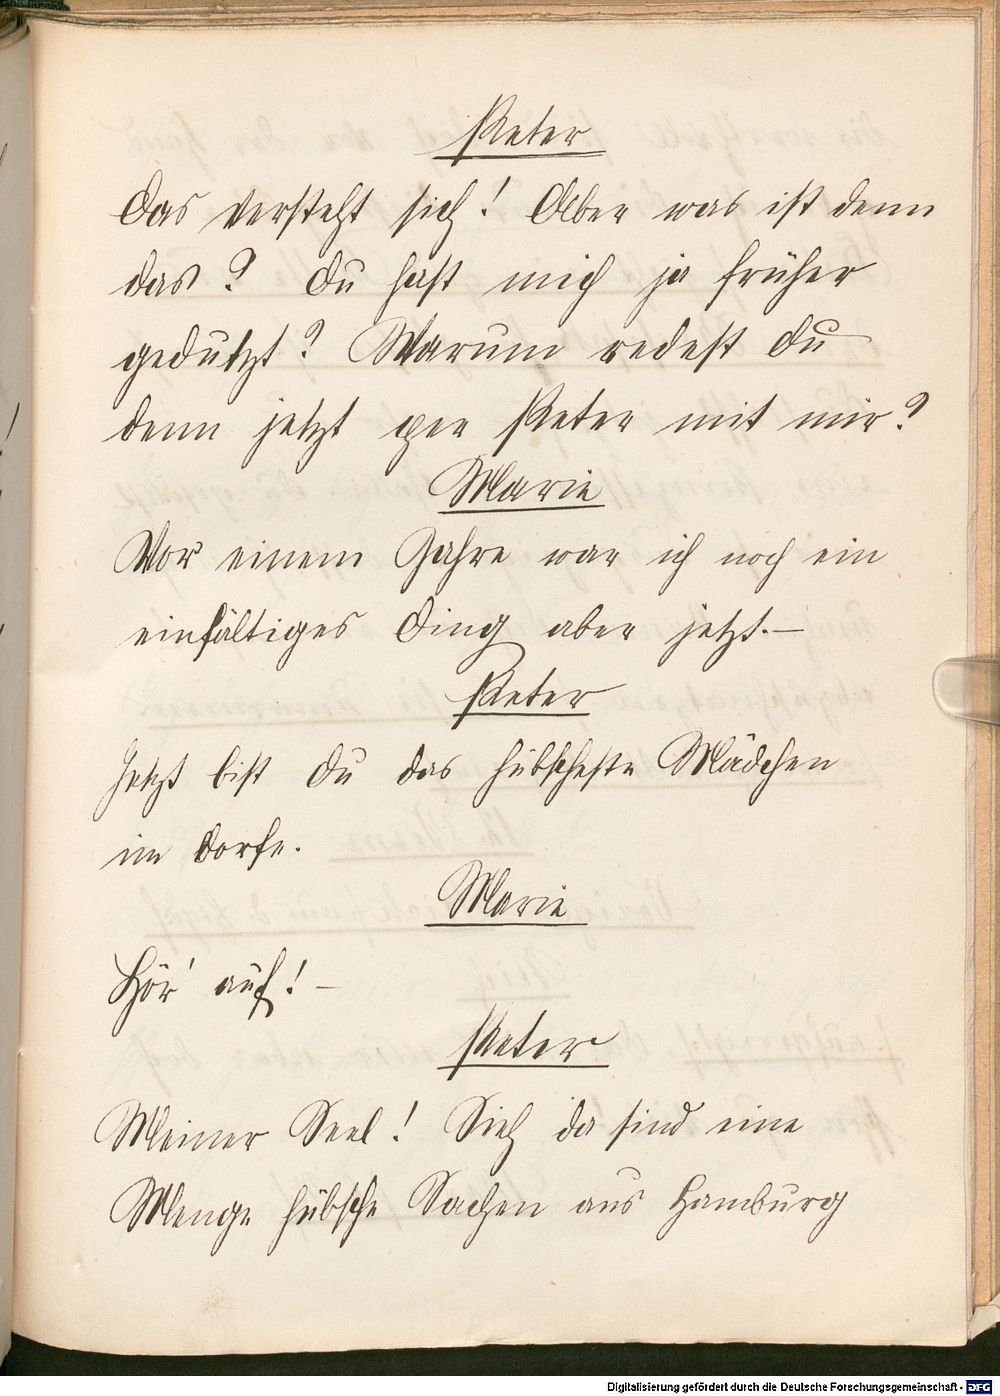 Peter
Das versteht sich! Aber was ist denn
das? Du hast mich ja früher
gedutzt? Warum redest du
denn jetzt per Peter mit mir?
Marie
Vor einem Jahre war ich noch ein
einfältiges Ding aber jetzt.—
Peter
Jetzt bist Du das hübscheste Mädchen
im Dorfe.
Marie
Hör' auf! —
Peter
Meiner Seel! Sieh da sind eine
Menge hübsche Sachen aus Hamburg
Digitalisierung gefördert durch die Deutsche Forschungsgemeinschaft - DFG